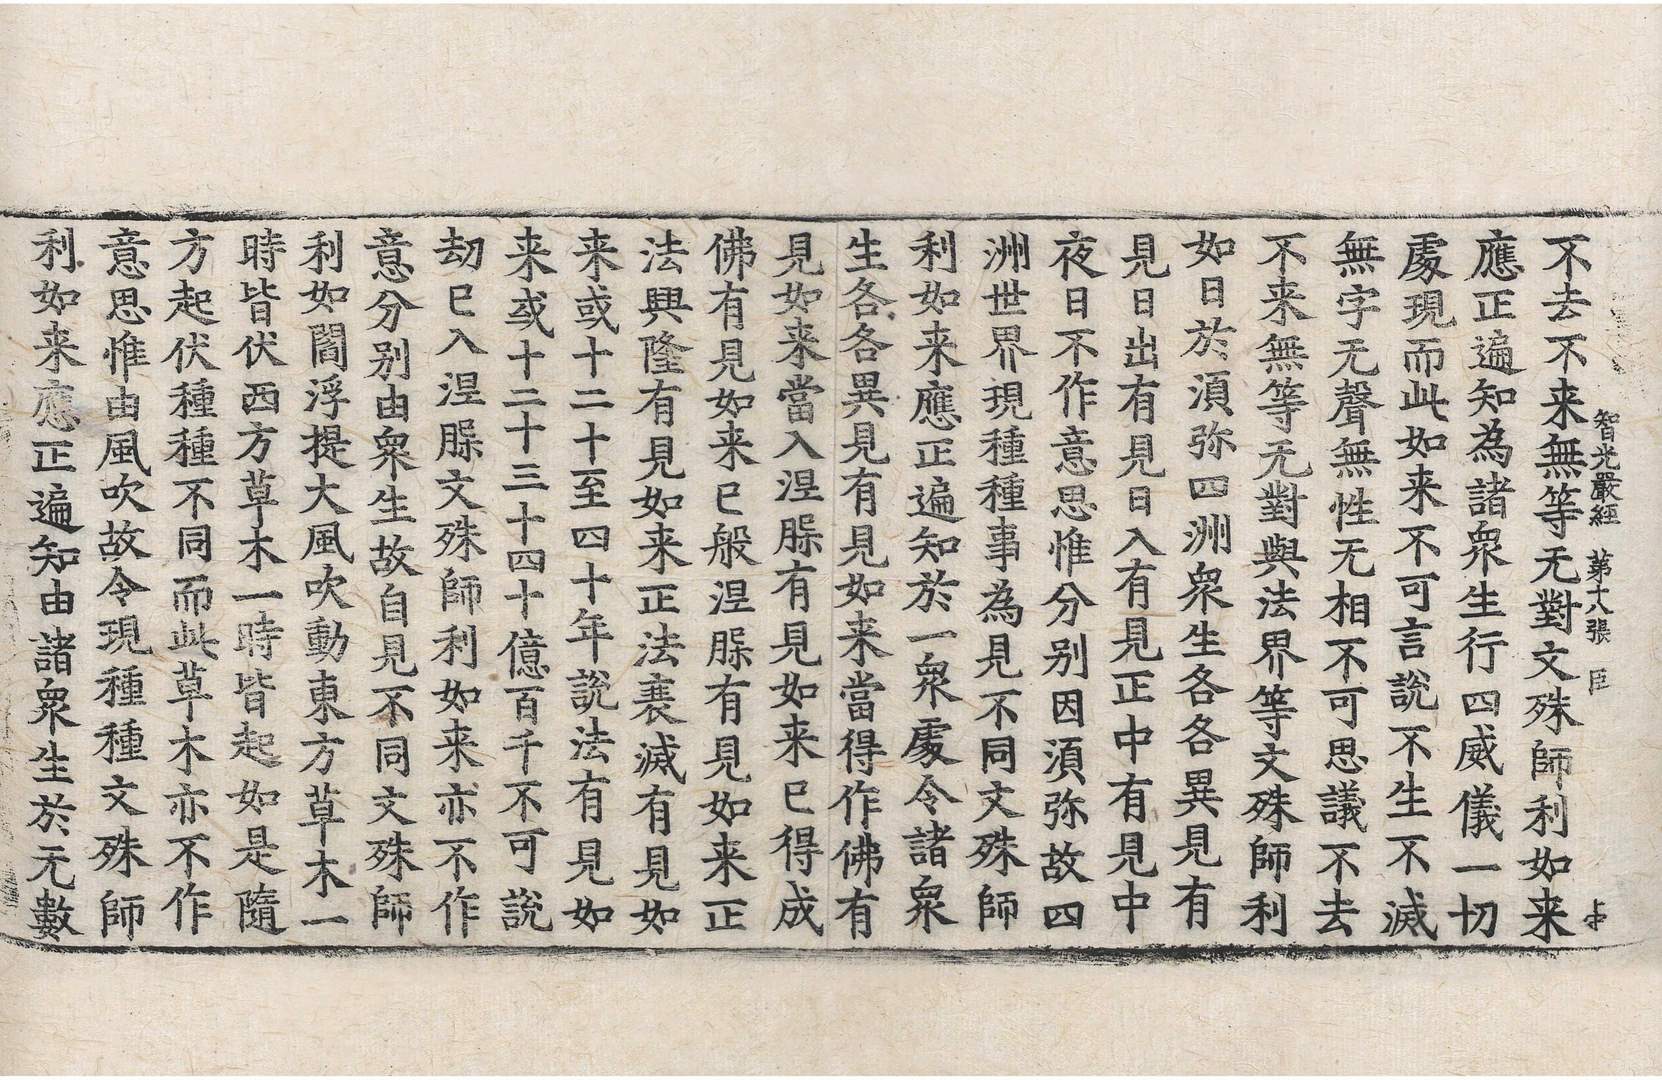 智光嚴經　第十八張　臣
不去不来無等无對文殊師利如来
應正遍知為諸衆生行四威儀一切
處現而此如来不可言說不生不滅
無字无聲無性无相不可思議不去
不来無等无對與法界等文殊師利
如日於須弥四洲衆生各各異見有
見日出有見日入有見正中有見中
夜日不作意思惟分别因須弥故四
洲世界現種種事為見不同文殊師
利如来應正遍知於一衆處令諸衆
生各各異見有見如来當得作佛有
見如来當入涅槃有見如来已得成
佛有見如来已般涅槃有見如来正
法興隆有見如来正法衰滅有見如
来或十二十至四十年說法有見如
来或十二十三十四十億百千不可說
劫已入涅槃文殊師利如来亦不作
意分别由衆生故自見不同文殊師
利如閻浮提大風吹動東方草木一
時皆伏西方草木一時皆起如是隨
方起伏種種不同而此草木亦不作
意思惟由風吹故令現種種文殊師
利如来應正遍知由諸衆生於无數